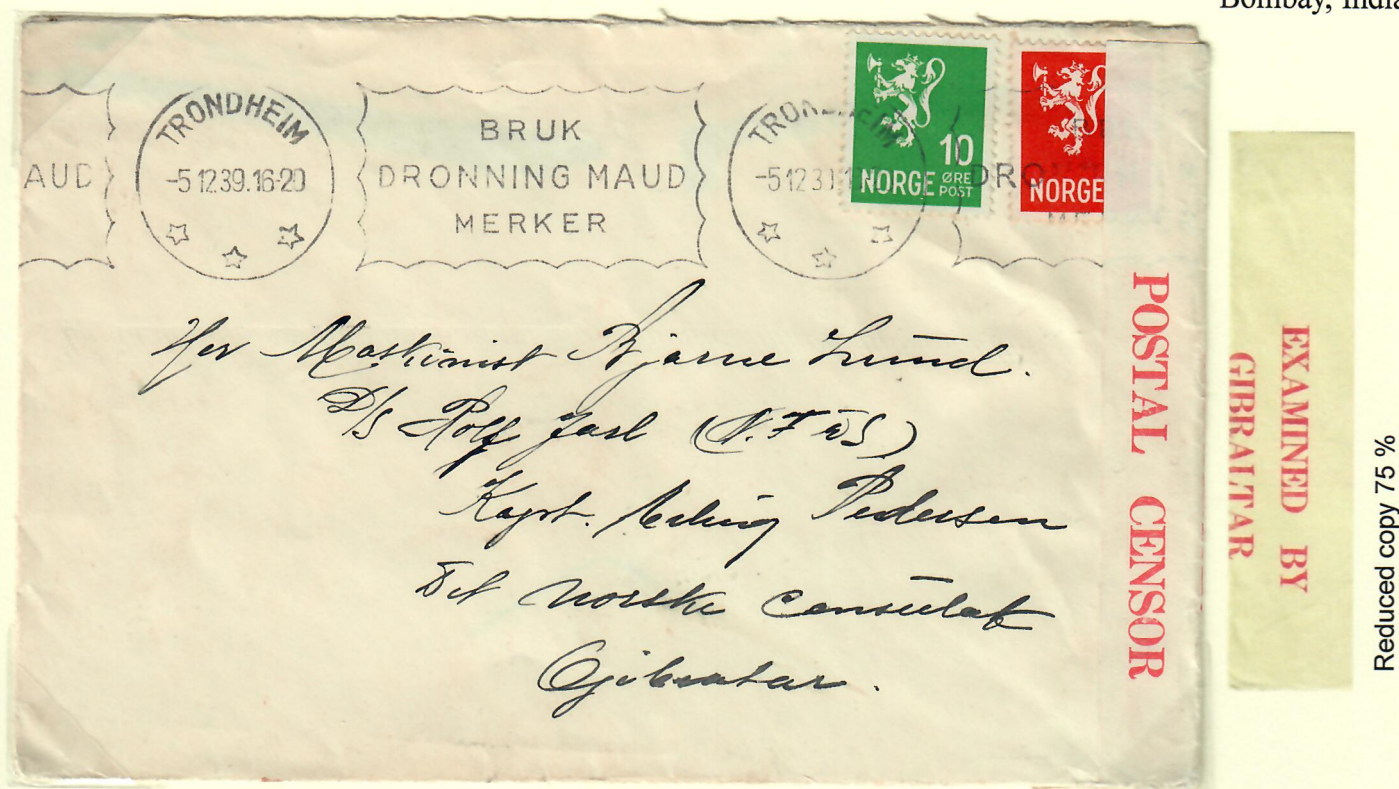 Bombay, India
AUD
TRONDHEIM
-5 12.39.16-20
BRUK
DRONNING MAUD
MERKER
TRONDHEIM
-5 12 39 1
10
ØRE
NORGE POST
DRO
NORGE
Herr Maskinist Bjarne Lund.
D/S Rolf Jarl (N.F.D.S)
Kapt. Erling Pedersen
Det norske Consulat
Gibraltar.
POSTAL CENSOR
EXAMINED BY
GIBRALTAR
Reduced copy 75 %